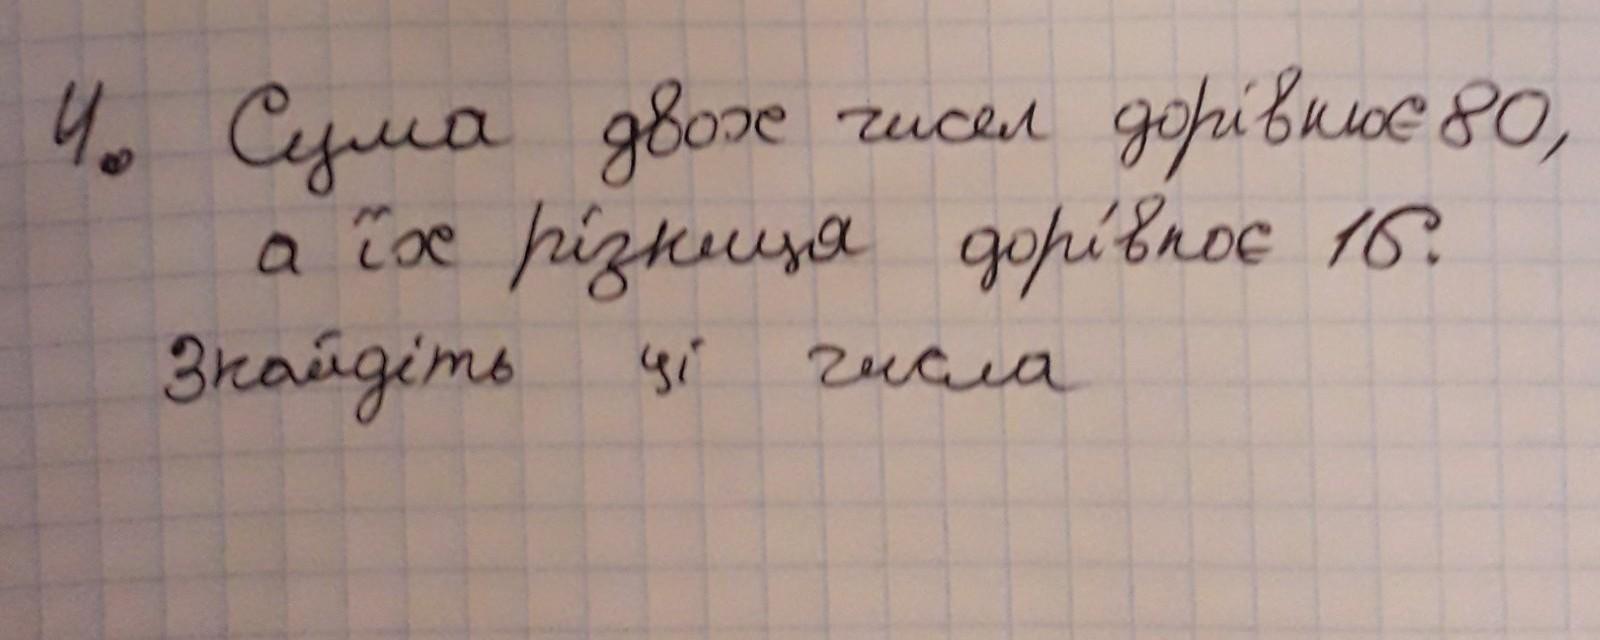 4. Сума двох чисел дорівнює 80,
а їх різниця дорівнює 16.
Знайдіть ці числа